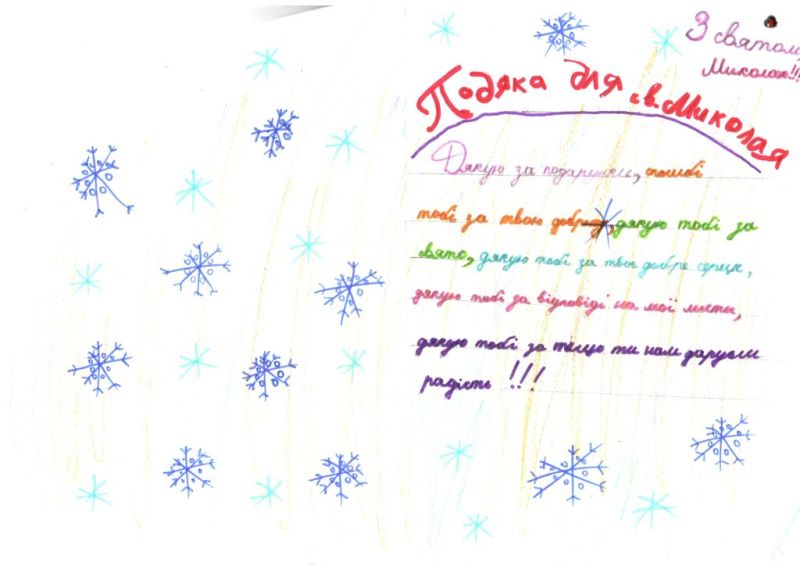 З святом
Миколая!!!
Подяка для св. Миколая
Дякую за подарунки, спасибі
тобі за твою доброту, дякую тобі за
свято, дякую тобі за твоє добре серце,
дякую тобі за відповіді на мої листи,
дякую тобі за те що ти нам даруєш
радість !!!